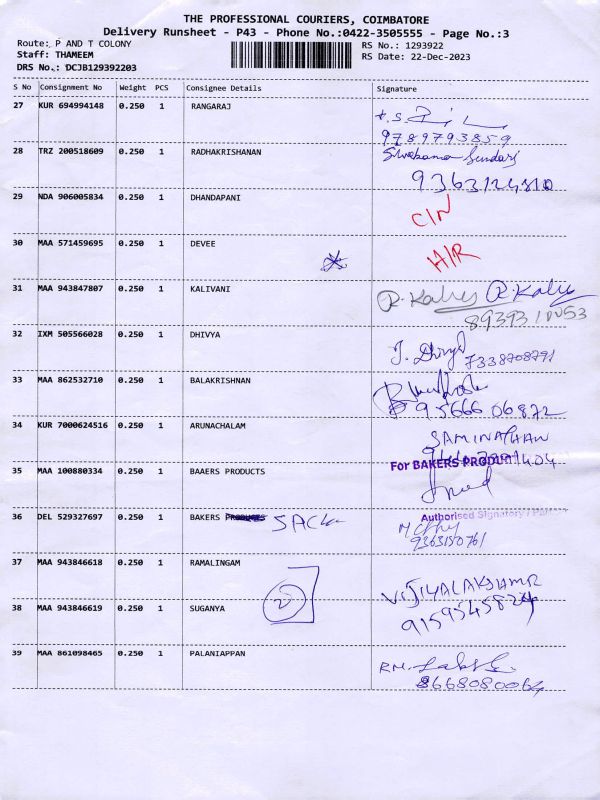 THE PROFESSIONAL COURIERS, COIMBATORE
Delivery Runsheet - P43 - Phone No.:0422-3505555 - Page No.:3
Route: P AND T COLONY
Staff: THAMEEM
DRS No.: DCJB129392203
RS No.: 1293922
RS Date: 22-Dec-2023
S No Consignment No Weight PCS Consignee Details Signature
27 KUR 694994148 0.250 1 RANGARAJ
9789793859
28 TRZ 200518609 0.250 1 RADHAKRISHANAN
29 NDA 906005834 0.250 1 DHANDAPANI
C/N
30 MAA 571459695 0.250 1 DEVEE
H/R
31 MAA 943847807 0.250 1 KALIVANI
R. Kaliv R. Kaliv
32 IXM 505566028 0.250 1 DHIVYA
J. Dhivya 7338708791
33 MAA 862532710 0.250 1 BALAKRISHNAN
95666 06872
34 KUR 7000624516 0.250 1 ARUNACHALAM
SAMINATHAN
35 MAA 100880334 0.250 1 BAAERS PRODUCTS
For BAKERS PRODUCT
36 DEL 529327697 0.250 1 BAKERS
Authorised Signatory
9363150761
37 MAA 943846618 0.250 1 RAMALINGAM
VIJIYALAKSHMR
38 MAA 943846619 0.250 1 SUGANYA
2
39 MAA 861098465 0.250 1 PALANIAPPAN
8668080064